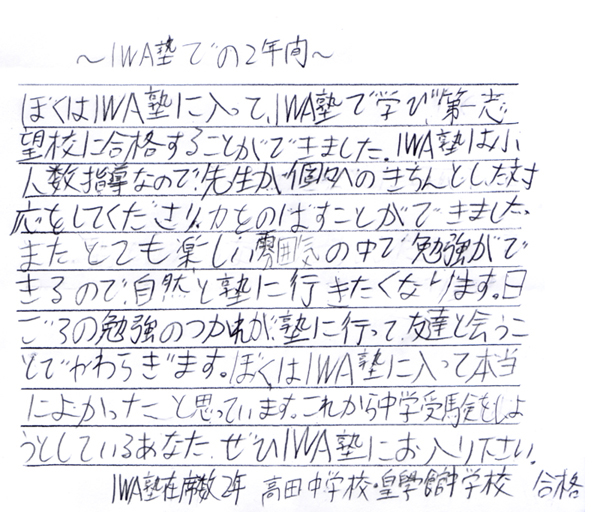 ～IWA塾での2年間～
ぼくはIWA塾に入って、IWA塾で学び、第一志
望校に合格することができました。IWA塾は小
人数指導なので、先生が個々へのきちんとした対
応をしてくださり、力をのばすことができました。
また、とても楽しい雰囲気の中で勉強がで
きるので、自然と塾に行きたくなります。日
ごろの勉強のつかれが、塾に行って友達と会うこ
とでやわらぎます。ぼくはIWA塾に入って本当
によかったと思っています。これから中学受験をしよ
うとしているあなた、ぜひIWA塾にお入り下さい。
IWA塾在席数2年 高田中学校・皇學館中学校 合格